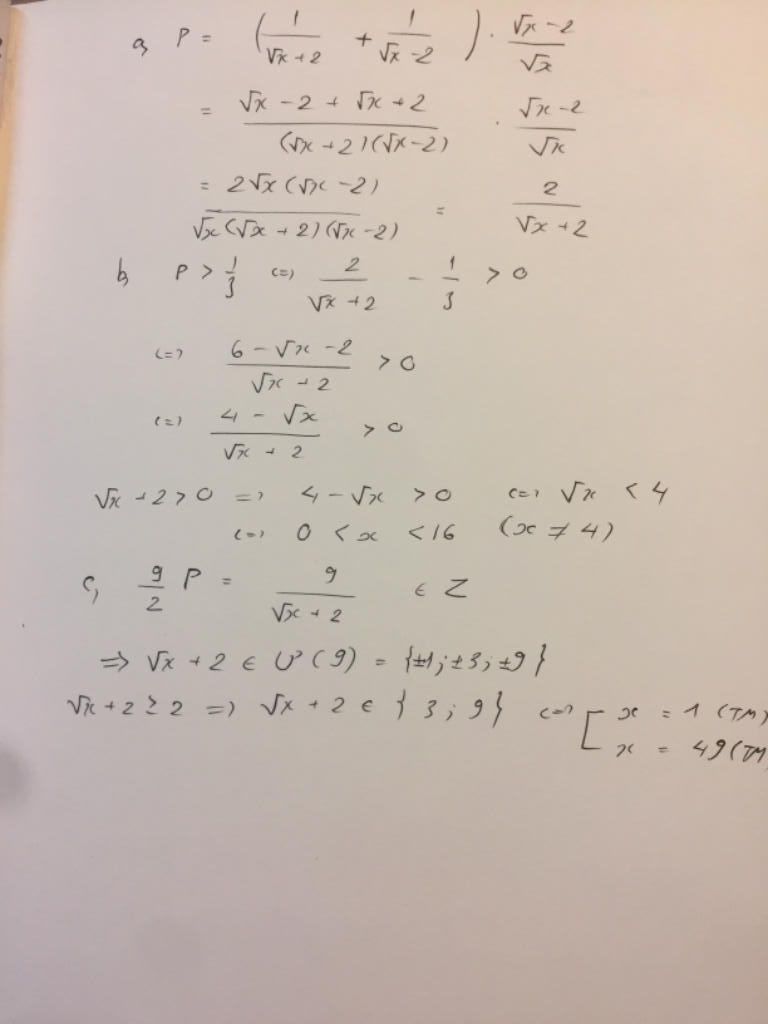 a, P = (1/(√x + 2) + 1/(√x - 2)) · (√x - 2)/√x
= (√x - 2 + √x + 2)/((√x + 2)(√x - 2)) · (√x - 2)/√x
= 2√x(√x - 2)/(√x(√x + 2)(√x - 2)) = 2/(√x + 2)
b, P > 1/3 <=> 2/(√x + 2) - 1/3 > 0
<=> (6 - √x - 2)/(√x + 2) > 0
<=> (4 - √x)/(√x + 2) > 0
√x + 2 > 0 => 4 - √x > 0 <=> √x < 4
<=> 0 < x < 16 (x ≠ 4)
c, 9/2 P = 9/(√x + 2) ∈ Z
=> √x + 2 ∈ Ư(9) = {±1; ±3; ±9}
√x + 2 ≥ 2 => √x + 2 ∈ {3; 9} <=> [ x = 1 (TM)
x = 49 (TM)